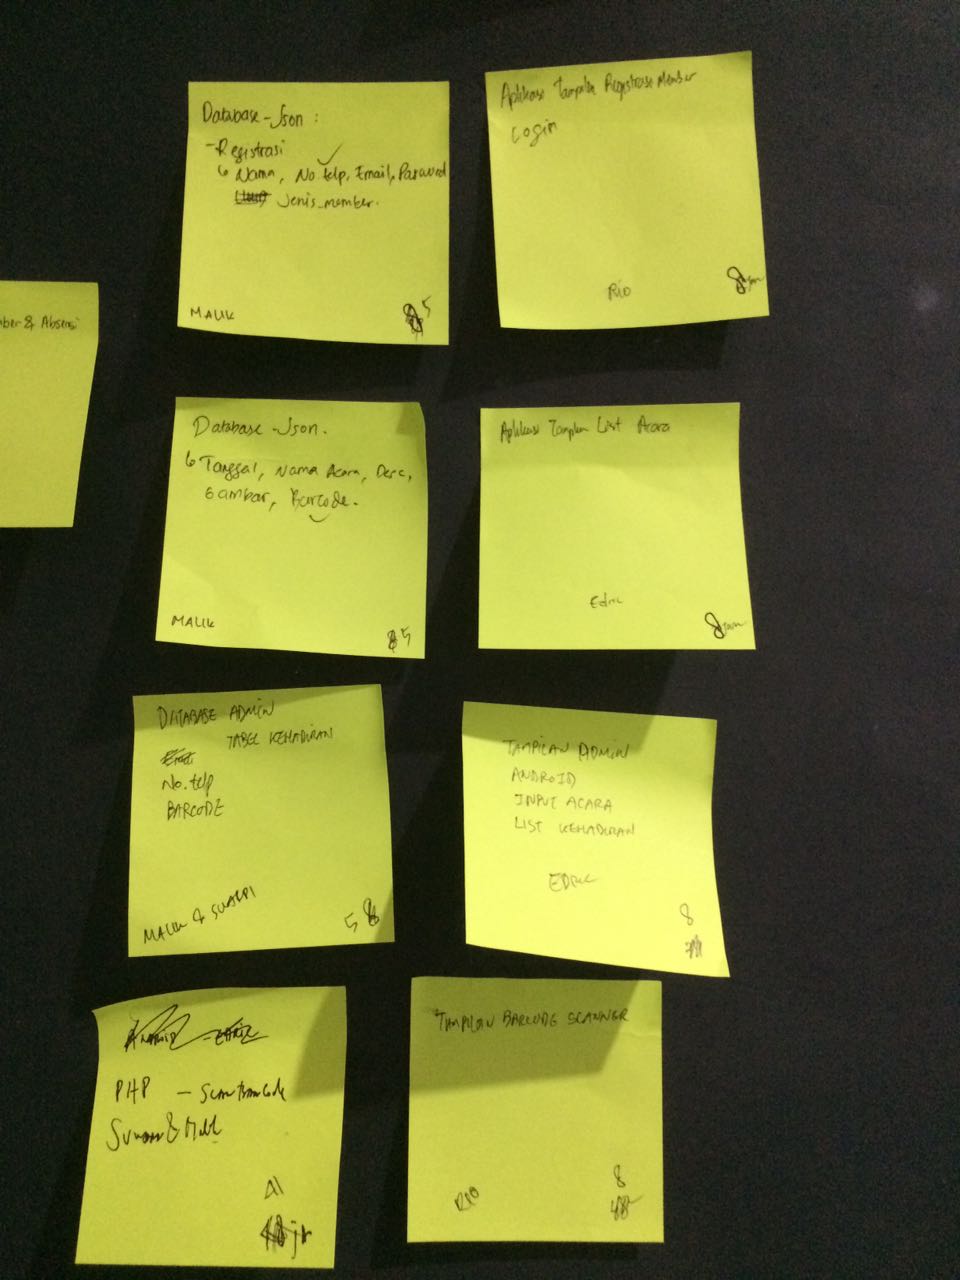 Database-Json :
- Registrasi
Nama, No. telp, Email, Password
Jenis_member.
MALIK
5
Aplikasi Tampilan Registrasi Member
Login
RIO
8
& Absensi
Database-Json.
Tanggal, Nama Acara, Desc,
Gambar, Barcode.
MALIK
5
Aplikasi Tampilan List Acara
Edric
8
DATABASE ADMIN
TABEL KEHADIRAN
No. telp
BARCODE
MALIK &
5
TAMPILAN ADMIN
ANDROID
INPUT ACARA
LIST KEHADIRAN
EDRIC
8
PHP -
TAMPILAN BARCODE SCANNER
RIO
8